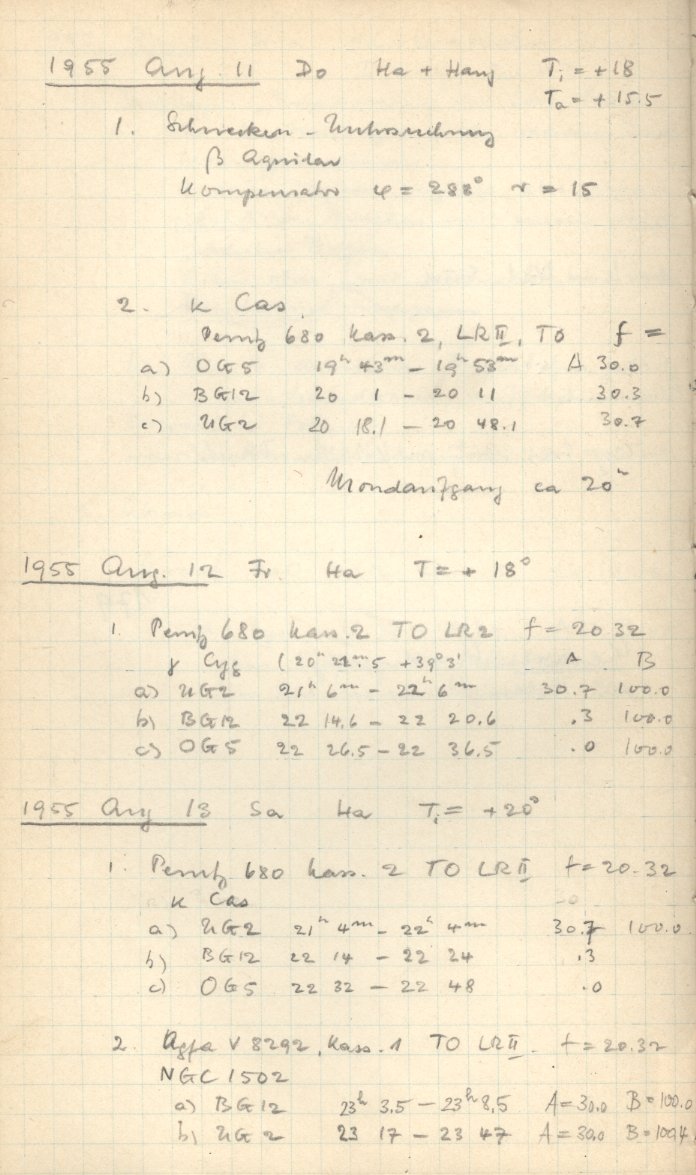 1955 Aug. 11 Do Ha + Haug Ti = +18
Ta = + 15.5
1. Schnecken - Untersuchung
β Aquilae
Kompensator φ = 288° r = 15
2. κ Cas.
Perutz 680 Kass. 2, LR II, TO f =
a) OG5 19h 43m - 19h 53m A 30.0
b) BG12 20 1 - 20 11 30.3
c) UG2 20 18.1 - 20 48.1 30.7
Mondaufgang ca 20h
1955 Aug. 12 Fr. Ha T = + 18°
1. Perutz 680 Kass. 2 TO LR2 f = 20 32
γ Cyg (20h 21m.5 +39° 3' A B
a) UG2 21h 6m - 22h 6m 30.7 100.0
b) BG12 22 14.6 - 22 20.6 .3 100.0
c) OG5 22 26.5 - 22 36.5 .0 100.0
1955 Aug 13 Sa Ha Ti = +20°
1. Perutz 680 Kass. 2 TO LR II f = 20.32
κ Cas
a) UG2 21h 4m - 22h 4m 30.7 100.0
b) BG12 22 14 - 22 24 .3
c) OG5 22 32 - 22 48 .0
2. Agfa V 8292, Kass. 1 TO LR II. f = 20.32
NGC 1502
a) BG12 23h 3.5 - 23h 8,5 A = 30,0 B = 100.0
b) UG2 23 17 - 23 47 A = 30,0 B = 109.4